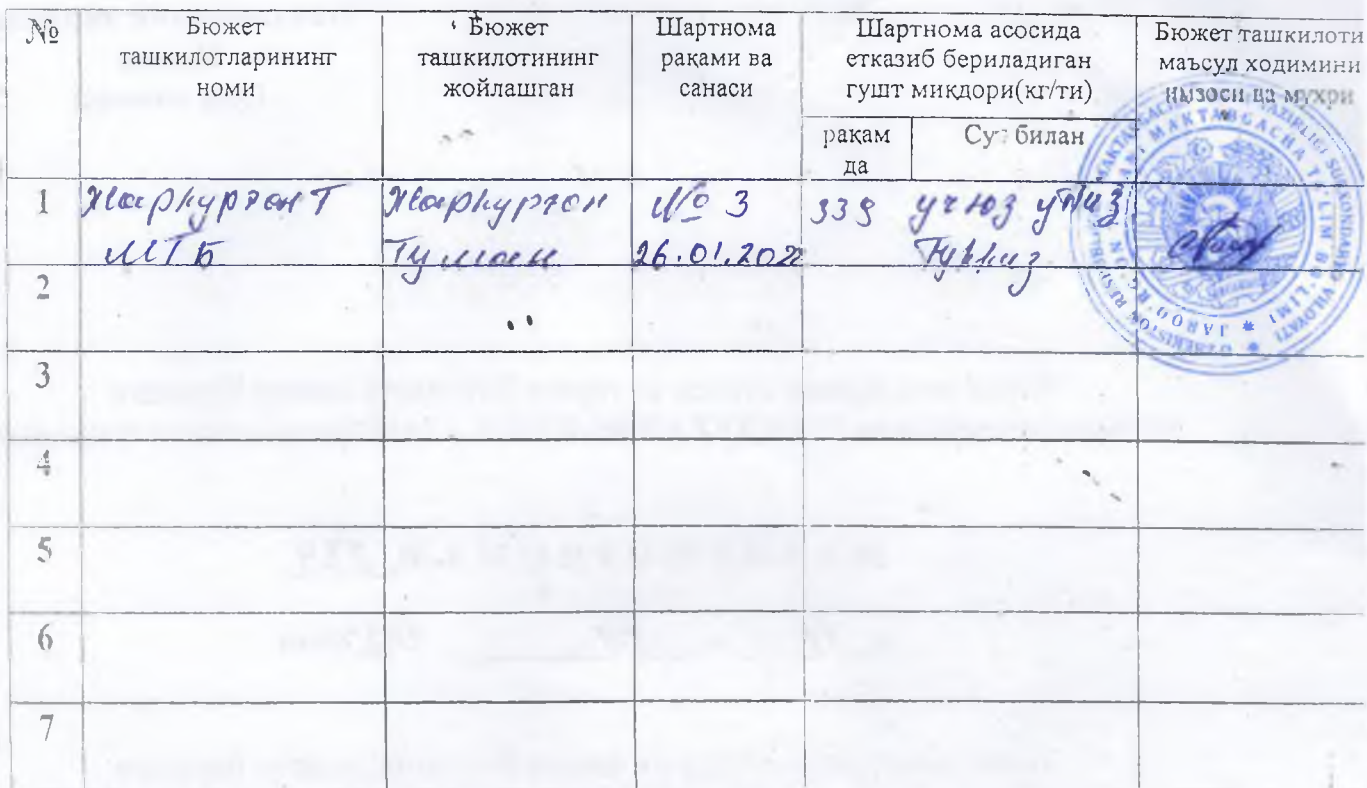 № Бюжет ташкилотларининг номи
Бюжет ташкилотининг жойлашган
Шартнома рақами ва санаси
Шартнома асосида етказиб бериладиган гушт микдори(кг/ти)
рақам да
Суз билан
Бюжет ташкилоти маъсул ходимини имзоси ва мухри
1 Жаркурган Т МТБ
Жаркурган Туман
№ 3 26.01.202
339
уч юз ўттиз
Туккиз
2
3
4
5
6
7